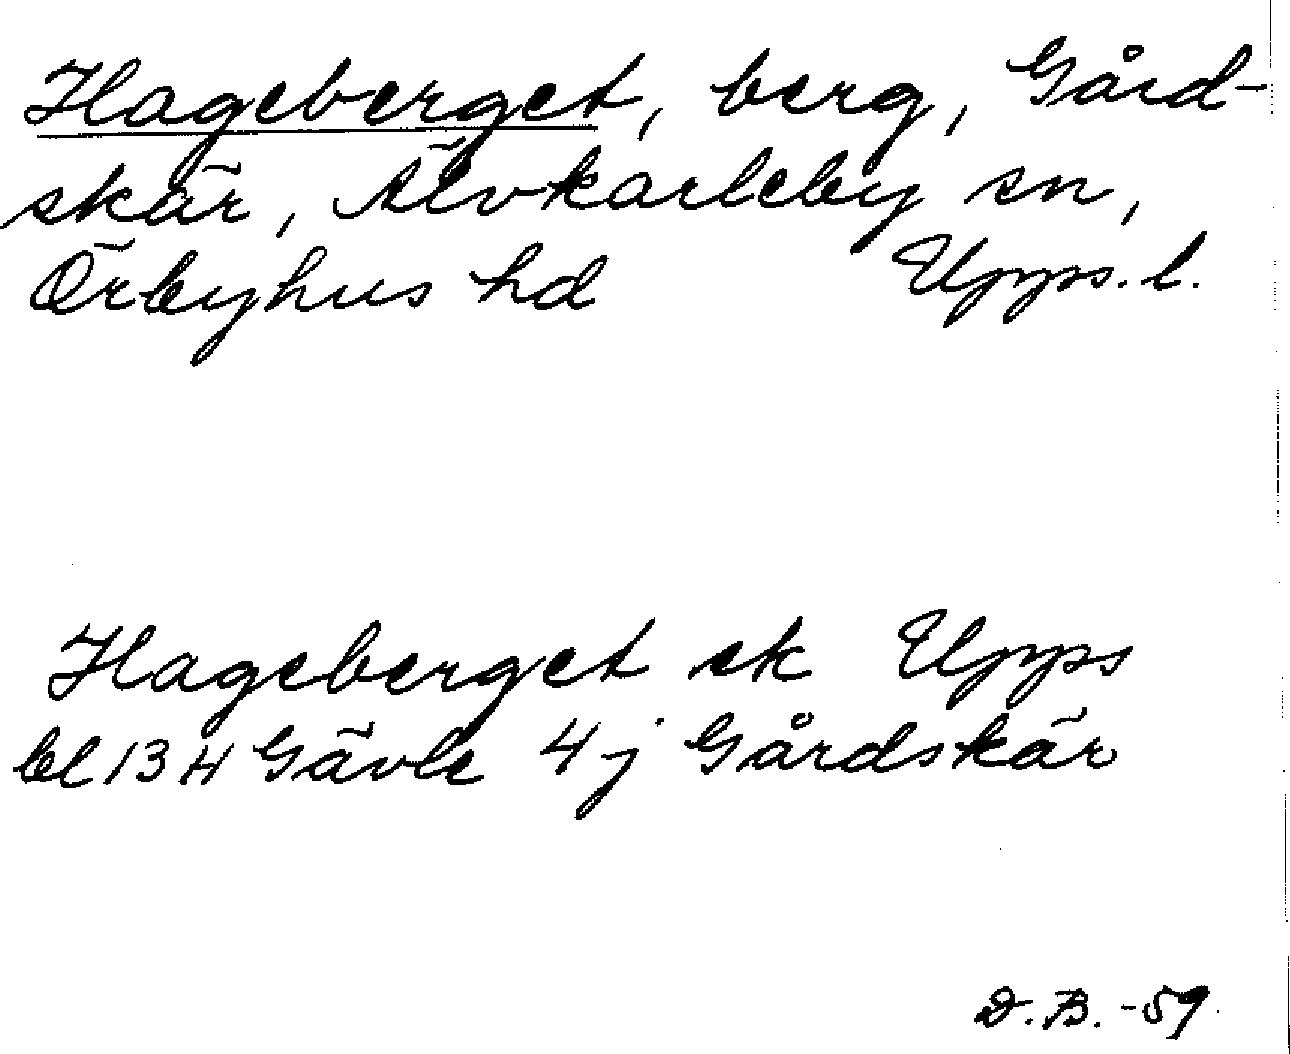 Hageberget, berg, Gård-
skär, Älvkarleby sn,
Örbyhus hd Upps. l.
Hageberget ek Upps
bl 13 H Gävle 4 j Gårdskär
D.B. -59